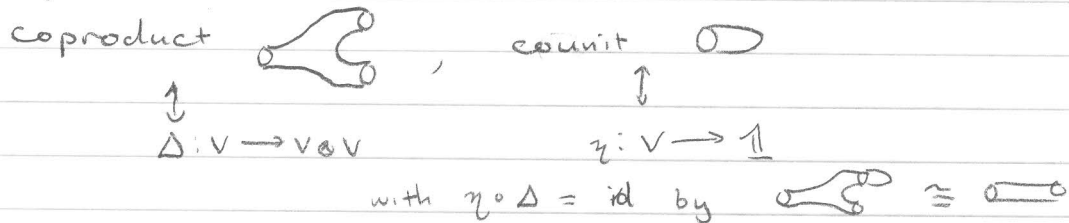 coproduct , counit
↕ ↕
Δ: V → V⊗V η: V → 𝟙
with η∘Δ = id by ≅